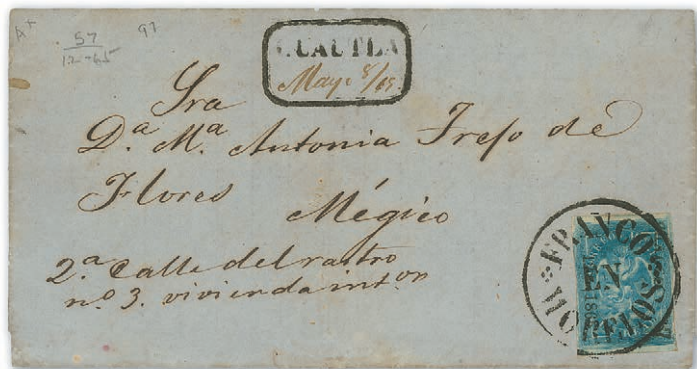 57
12-65
97
CUAUTLA
Mayo 8/65
Sra
D.ª M.ª Antonia Trejo de
Flores
Mégico
2.ª Calle del rastro
nº 3. vivienda intor
FRANCO
EN
MORELOS